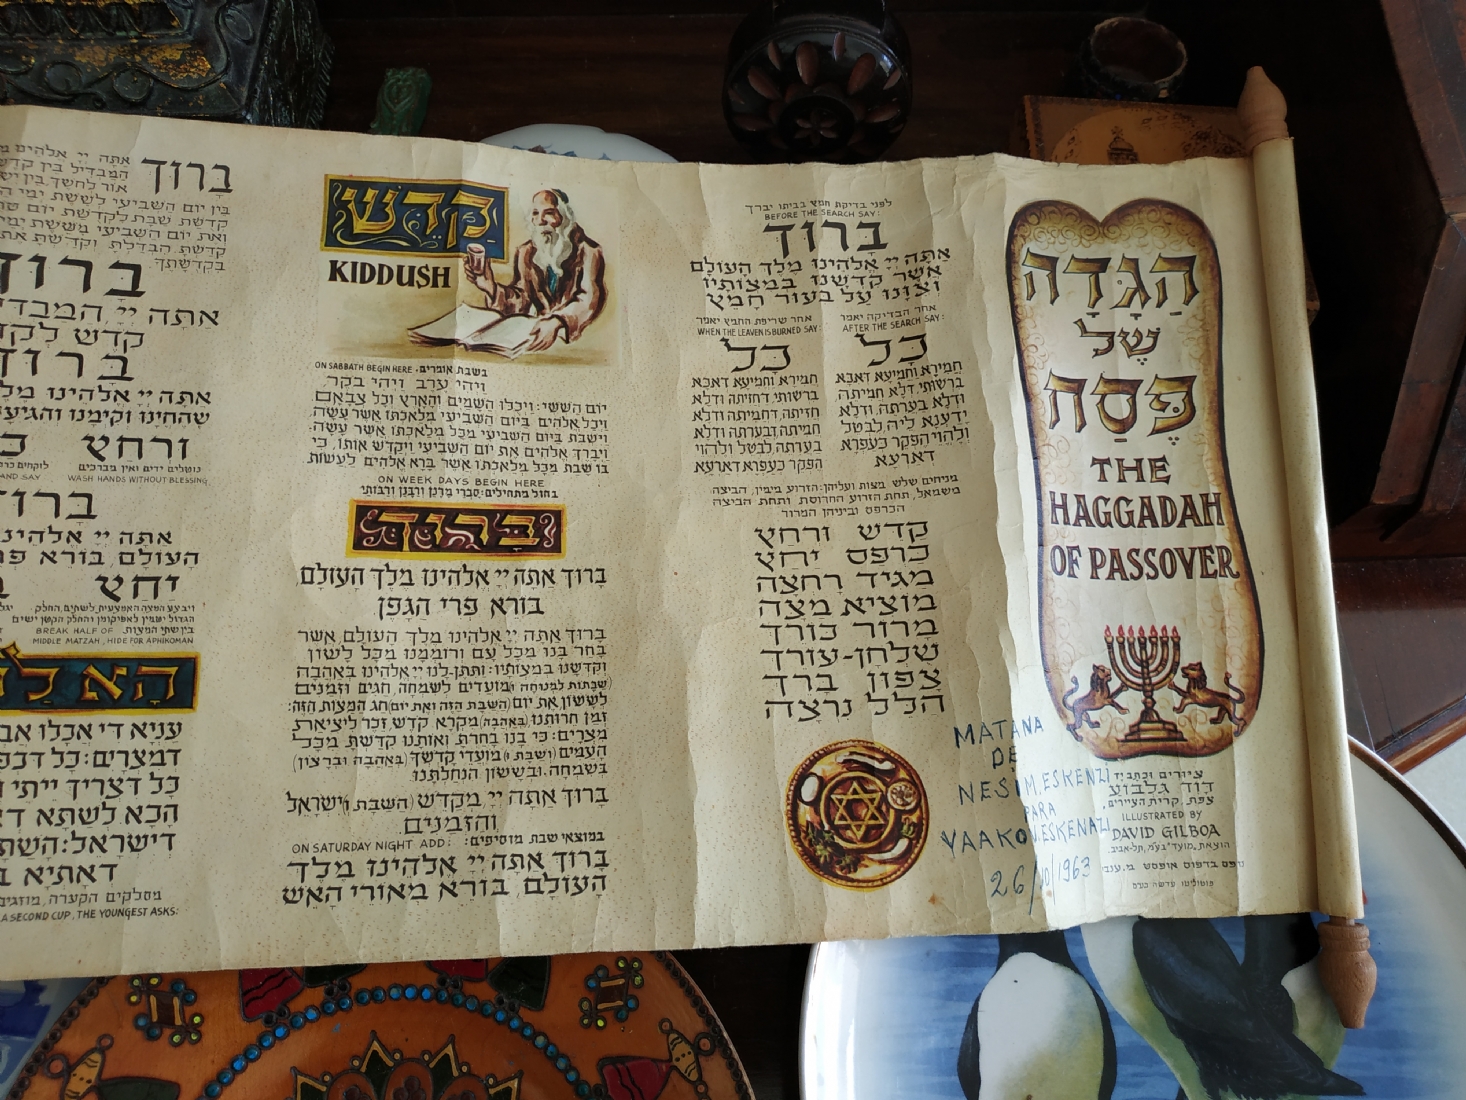 הַגָּדָה
שֶׁל
פֶּסַח
THE
HAGGADAH
OF PASSOVER
ציורים וכתב יד
דוד גלבוע
צפת, קרית הציירים
ILLUSTRATED BY
DAVID GILBOA
MATANA
DE
NESIM.ESKENZI
PARA
YAAKOV.ESKENAZI
26/10/1963
לפני בדיקת חמץ בביתו יברך
BEFORE THE SEARCH SAY:
ברוך
אתה יי אלהינו מלך העולם
אשר קדשנו במצותיו
וצונו על בעור חמץ
אחר הבדיקה יאמר
AFTER THE SEARCH SAY:
כל
חמירא וחמיעא דאכא
ברשותי דלא חמיתה
ודלא בערתה ודלא
ידענא ליה לבטל
ולהוי הפקר כעפרא
דארעא
אחר שריפת החמץ יאמר
WHEN THE LEAVEN IS BURNED SAY:
כל
חמירא וחמיעא דאכא
ברשותי דחזיתה ודלא
חזיתה דחמיתה ודלא
חמיתה דבערתה ודלא
בערתה לבטל ולהוי
הפקר כעפרא דארעא
מניחים שלש מצות ועליהן: הזרוע מימין, הביצה
משמאל, תחת הזרוע החרוסת, ותחת הביצה
הכרפס וביניהן המרור
קדש ורחץ
כרפס יחץ
מגיד רחצה
מוציא מצה
מרור כורך
שלחן-עורך
צפון ברך
הלל נרצה
קַדֵּשׁ
KIDDUSH
ON SABBATH BEGIN HERE · בשבת אומרים
ויהי ערב ויהי בקר
יום הששי: ויכלו השמים והארץ וכל צבאם
ויכל אלהים ביום השביעי מלאכתו אשר עשה
וישבת ביום השביעי מכל מלאכתו אשר עשה:
ויברך אלהים את יום השביעי ויקדש אותו, כי
בו שבת מכל מלאכתו אשר ברא אלהים לעשות
ON WEEK DAYS BEGIN HERE
בחול מתחילים: סברי מרנן ורבנן ורבותי
ברוך
ברוך אתה יי אלהינו מלך העולם,
בורא פרי הגפן
ברוך אתה יי אלהינו מלך העולם, אשר
בחר בנו מכל עם ורוממנו מכל לשון
וקדשנו במצותיו: ותתן-לנו יי אלהינו באהבה
(שבתות למנוחה ו) מועדים לשמחה, חגים וזמנים
לששון, את יום (השבת הזה ואת יום) חג המצות הזה:
זמן חרותנו, (באהבה) מקרא קדש, זכר ליציאת
מצרים: כי בנו בחרת ואותנו קדשת מכל
העמים (ושבת ו) מועדי קדשך (באהבה וברצון)
בשמחה ובששון הנחלתנו
ברוך אתה יי, מקדש (השבת ו) ישראל
והזמנים
ON SATURDAY NIGHT ADD: במוצאי שבת מוסיפים:
ברוך אתה יי אלהינו מלך
העולם, בורא מאורי האש
ברוך
אתה יי אלהינו
המבדיל בין קדש
אור לחשך, בין
בין יום השביעי לששת ימי
קדשת שבת לקדשת יום
ואת יום השביעי מששת ימי
קדשת הבדלת וקדשת את
בקדשתך
ברוך
אתה יי המבדיל
קדש לקדש
ברוך
אתה יי אלהינו
שהחינו וקימנו והגיענו
ורחץ
נוטלים ידים ואין מברכים
WASH HANDS WITHOUT BLESSING
AND SAY
ברוך
אתה יי אלהינו
העולם, בורא
יחץ
BREAK HALF OF
MIDDLE MATZAH, HIDE FOR APHIKOMAN
הא לח
עניא די אכלו
דמצרים: כל
כל דצריך ייתי
הכא לשתא
דישראל: השתא
דאתיא
מסלקים הקערה, מוזגים
A SECOND CUP, THE YOUNGEST ASKS: